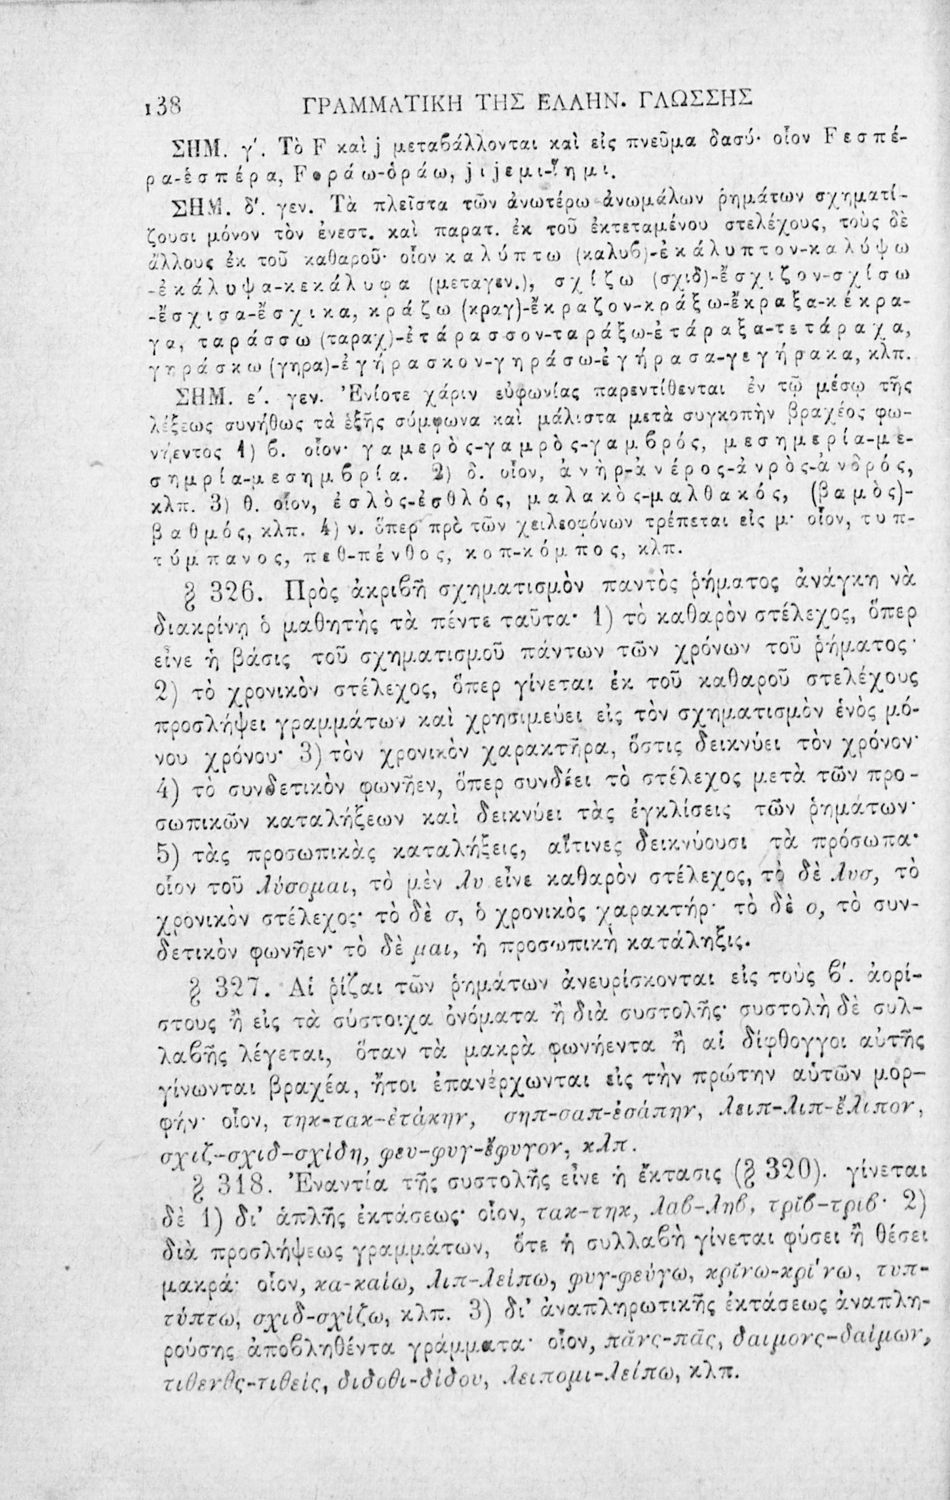 138 ΓΡΑΜΜΑΤΙΚΗ ΤΗΣ ΕΛΛΗΝ. ΓΛΩΣΣΗΣ
ΣΗΜ. γ΄. Τὸ F καὶ j μεταβάλλονται καὶ εἰς πνεῦμα δασύ· οἷον Fεσπέ-
ρα-ἑσπέρα, Fοράω-ὁράω, jιjεμι-ἵημι.
ΣΗΜ. δ΄. γεν. Τὰ πλεῖστα τῶν ἀνωτέρω ἀνωμάλων ῥημάτων σχηματί-
ζουσι μόνον τὸν ἐνεστ. καὶ παρατ. ἐκ τοῦ ἐκτεταμένου στελέχους, τοὺς δὲ
ἄλλους ἐκ τοῦ καθαροῦ· οἷον καλύπτω (καλυβ)-ἐκάλυπτον-καλύψω
-ἐκάλυψα-κεκάλυφα (μεταγεν.), σχίζω (σχιδ)-ἔσχιζον-σχίσω
-ἔσχισα-ἔσχικα, κράζω (κραγ)-ἔκραζον-κράξω-ἔκραξα-κέκρα-
γα, ταράσσω (ταραχ)-ἐτάρασσον-ταράξω-ἐτάραξα-τετάραχα,
γηράσκω (γηρα)-ἐγήρασκον-γηράσω-ἐγήρασα-γεγήρακα, κλπ.
ΣΗΜ. ε΄. γεν. Ἐνίοτε χάριν εὐφωνίας παρεντίθενται ἐν τῷ μέσῳ τῆς
λέξεως συνήθως τὰ ἑξῆς σύμφωνα καὶ μάλιστα μετὰ συγκοπὴν βραχέος φω-
νήεντος 1) β. οἷον· γαμερὸς-γαμρὸς-γαμβρός, μεσημερία-με-
σημρία-μεσημβρία. 2) δ. οἷον, ἀνὴρ-ἀνέρος-ἀνρὸς-ἀνδρός,
κλπ. 3) θ. οἷον, ἐσλὸς-ἐσθλός, μαλακὸς-μαλθακός, (βαμὸς)-
βαθμός, κλπ. 4) ν. ὅπερ πρὸ τῶν χειλεοφόνων τρέπεται εἰς μ· οἷον, τυπ-
τύμπανος, πεθ-πένθος, κοπ-κόμπος, κλπ.
§ 326. Πρὸς ἀκριβῆ σχηματισμὸν παντὸς ῥήματος ἀνάγκη νὰ
διακρίνῃ ὁ μαθητὴς τὰ πέντε ταῦτα· 1) τὸ καθαρὸν στέλεχος, ὅπερ
εἶνε ἡ βάσις τοῦ σχηματισμοῦ πάντων τῶν χρόνων τοῦ ῥήματος·
2) τὸ χρονικὸν στέλεχος, ὅπερ γίνεται ἐκ τοῦ καθαροῦ στελέχους
προσλήψει γραμμάτων καὶ χρησιμεύει εἰς τὸν σχηματισμὸν ἑνὸς μό-
νου χρόνου· 3) τὸν χρονικὸν χαρακτῆρα, ὅστις δεικνύει τὸν χρόνον·
4) τὸ συνδετικὸν φωνῆεν, ὅπερ συνδέει τὸ στέλεχος μετὰ τῶν προ-
σωπικῶν καταλήξεων καὶ δεικνύει τὰς ἐγκλίσεις τῶν ῥημάτων·
5) τὰς προσωπικὰς καταλήξεις, αἵτινες δεικνύουσι τὰ πρόσωπα·
οἷον τοῦ λύσομαι, τὸ μὲν λυ εἶνε καθαρὸν στέλεχος, τὸ δὲ λυσ, τὸ
χρονικὸν στέλεχος· τὸ δὲ σ, ὁ χρονικὸς χαρακτήρ· τὸ δὲ ο, τὸ συν-
δετικὸν φωνῆεν· τὸ δὲ μαι, ἡ προσωπικὴ κατάληξις.
§ 327. Αἱ ῥίζαι τῶν ῥημάτων ἀνευρίσκονται εἰς τοὺς β΄. ἀορί-
στους ἢ εἰς τὰ σύστοιχα ὀνόματα ἢ διὰ συστολῆς· συστολὴ δὲ συλ-
λαβῆς λέγεται, ὅταν τὰ μακρὰ φωνήεντα ἢ αἱ δίφθογγοι αὐτῆς
γίνωνται βραχέα, ἤτοι ἐπανέρχωνται εἰς τὴν πρώτην αὑτῶν μορ-
φήν· οἷον, τηκ-τακ-ἐτάκην, σηπ-σαπ-ἐσάπην, λειπ-λιπ-ἔλιπον,
σχιζ-σχιδ-σχίδη, φευ-φυγ-ἔφυγον, κλπ.
§ 318. Ἐναντία τῆς συστολῆς εἶνε ἡ ἔκτασις (§ 320). γίνεται
δὲ 1) δι᾽ ἁπλῆς ἐκτάσεως· οἷον, τακ-τηκ, λαβ-ληβ, τρῐβ-τριβ· 2)
διὰ προσλήψεως γραμμάτων, ὅτε ἡ συλλαβὴ γίνεται φύσει ἢ θέσει
μακρά· οἷον, κα-καίω, λιπ-λείπω, φυγ-φεύγω, κρῐνω-κρίνω, τυπ-
τύπτω, σχιδ-σχίζω, κλπ. 3) δι᾽ ἀναπληρωτικῆς ἐκτάσεως ἀναπλη-
ρούσης ἀποβληθέντα γράμματα· οἷον, πᾰνς-πᾶς, δαιμονς-δαίμων,
τιθενθς-τιθείς, διδοθι-δίδου, λειπομι-λείπω, κλπ.